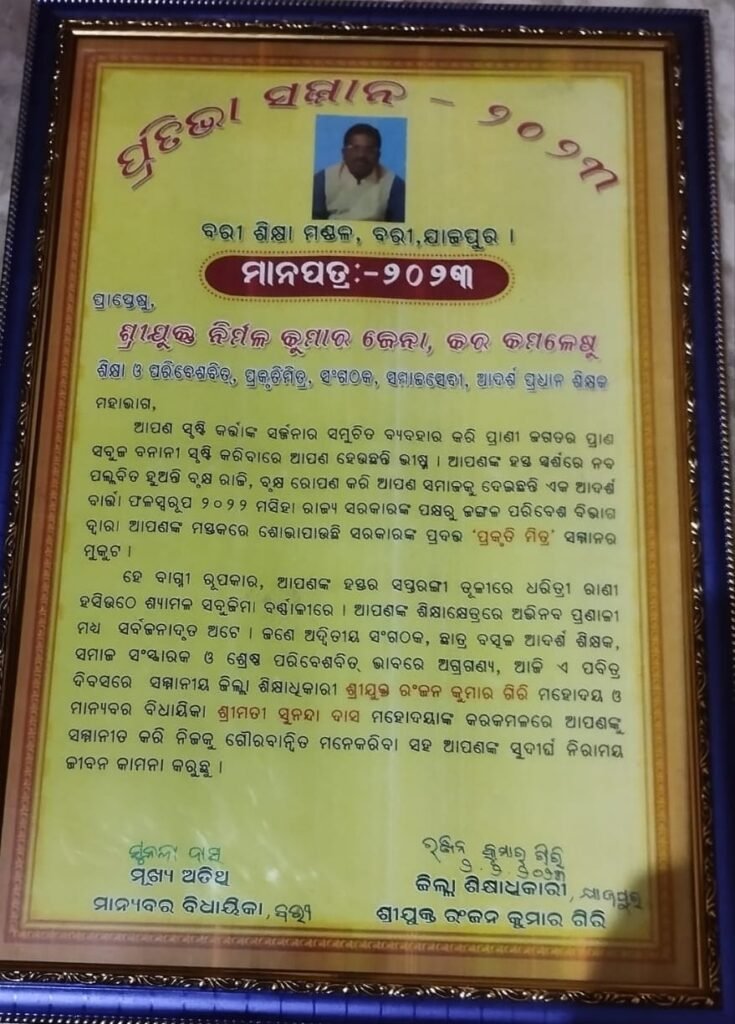 ପ୍ରତିଭା ସମ୍ମାନ - ୨୦୨୩
ବରୀ ଶିକ୍ଷା ମଣ୍ଡଳ, ବରୀ,ଯାଜପୁର ।
ମାନପତ୍ର:-୨୦୨୩
ପ୍ରାପ୍ତେଷୁ,
ଶ୍ରୀଯୁକ୍ତ ନିର୍ମଳ କୁମାର ଜେନା, କର କମଳେଷୁ
ଶିକ୍ଷା ଓ ପରିବେଶବିତ୍, ପ୍ରକୃତିମିତ୍ର, ସଂଗଠକ, ସମାଜସେବୀ, ଆଦର୍ଶ ପ୍ରଧାନ ଶିକ୍ଷକ
ମହାଭାଗ,
ଆପଣ ସୃଷ୍ଟି କର୍ତ୍ତାଙ୍କ ସର୍ଜନାର ସମୁଚିତ ବ୍ୟବହାର କରି ପ୍ରାଣୀ ଜଗତର ପ୍ରାଣ
ସବୁଜ ବନାନୀ ସୃଷ୍ଟି କରିବାରେ ଆପଣ ହେଉଛନ୍ତି ଭୀଷ୍ମ । ଆପଣଙ୍କ ହସ୍ତ ସ୍ପର୍ଶରେ ନବ
ପଲ୍ଲବିତ ହୁଅନ୍ତି ବୃକ୍ଷ ରାଜି, ବୃକ୍ଷ ରୋପଣ କରି ଆପଣ ସମାଜକୁ ଦେଇଛନ୍ତି ଏକ ଆଦର୍ଶ
ବାର୍ତ୍ତା ଫଳସ୍ୱରୂପ ୨୦୨୨ ମସିହା ରାଜ୍ୟ ସରକାରଙ୍କ ପକ୍ଷରୁ ଜଙ୍ଗଳ ପରିବେଶ ବିଭାଗ
ଦ୍ୱାରା ଆପଣଙ୍କ ମସ୍ତକରେ ଶୋଭାପାଉଛି ସରକାରଙ୍କ ପ୍ରଦତ୍ତ ‘ପ୍ରକୃତି ମିତ୍ର’ ସମ୍ମାନର
ମୁକୁଟ ।
ହେ ବାଗ୍ମୀ ରୂପକାର, ଆପଣଙ୍କ ହସ୍ତର ସପ୍ତରଙ୍ଗୀ ତୂଳୀରେ ଧରିତ୍ରୀ ରାଣୀ
ହସିଉଠେ ଶ୍ୟାମଳ ସବୁଜିମା ବର୍ଣ୍ଣାଳୀରେ । ଆପଣଙ୍କ ଶିକ୍ଷାକ୍ଷେତ୍ରରେ ଅଭିନବ ପ୍ରଣାଳୀ
ମଧ୍ୟ ସର୍ବଜନାଦୃତ ଅଟେ । ଜଣେ ଅଦ୍ୱିତୀୟ ସଂଗଠକ, ଛାତ୍ର ବତ୍ସଳ ଆଦର୍ଶ ଶିକ୍ଷକ,
ସମାଜ ସଂସ୍କାରକ ଓ ଶ୍ରେଷ୍ଠ ପରିବେଶବିତ୍ ଭାବରେ ଅଗ୍ରଗଣ୍ୟ, ଆଜି ଏ ପବିତ୍ର
ଦିବସରେ ସମ୍ମାନୀୟ ଜିଲ୍ଲା ଶିକ୍ଷାଧିକାରୀ ଶ୍ରୀଯୁକ୍ତ ରଂଜନ କୁମାର ଗିରି ମହୋଦୟ ଓ
ମାନ୍ୟବର ବିଧାୟିକା ଶ୍ରୀମତୀ ସୁନନ୍ଦା ଦାସ ମହୋଦୟାଙ୍କ କରକମଳରେ ଆପଣଙ୍କୁ
ସମ୍ମାନୀତ କରି ନିଜକୁ ଗୌରବାନ୍ୱିତ ମନେକରିବା ସହ ଆପଣଙ୍କ ସୁଦୀର୍ଘ ନିରାମୟ
ଜୀବନ କାମନା କରୁଛୁ ।
ସୁନନ୍ଦା ଦାସ
ମୂଖ୍ୟ ଅତିଥି
ମାନ୍ୟବର ବିଧାୟିକା,
ରଞ୍ଜନ କୁମାର ଗିରି
ଜିଲ୍ଲା ଶିକ୍ଷାଧିକାରୀ, ଯାଜପୁର
ଶ୍ରୀଯୁକ୍ତ ରଂଜନ କୁମାର ଗିରି